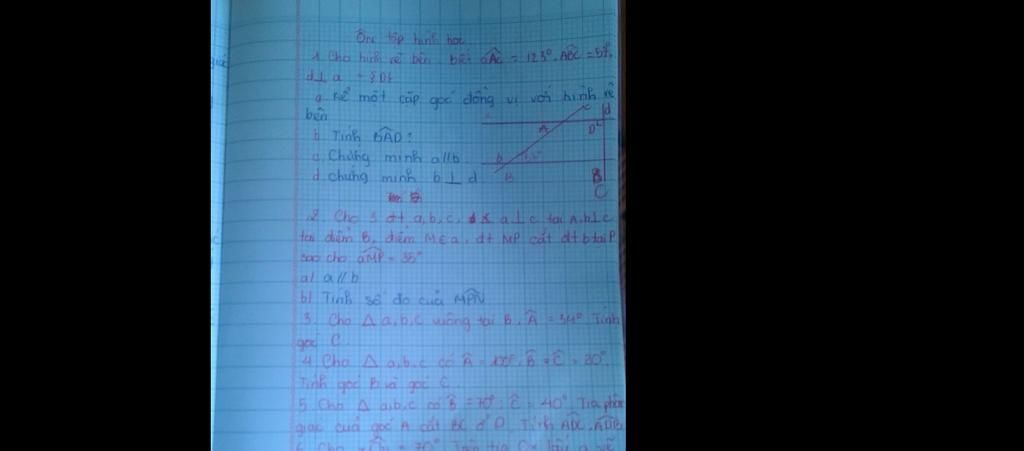 Ôn tập hình học
1. Cho hình vẽ bên biết aAc = 123°, ABC = 57°
d ⊥ a = {D}
a. Kể một cặp góc đồng vị với hình vẽ
bên
b. Tính BAD?
c. Chứng minh a//b
d. chứng minh b ⊥ d
A
D
d
B
B
C
2. Cho 3 đt a, b, c, a ⊥ c tại A, b ⊥ c
tại điểm B, điểm M ∈ a, đt MP cắt đt b tại P
sao cho aMP = 35°
a/ a // b
b/ Tính số đo của MPN
3. Cho Δ a, b, c vuông tại B, Â = 34° Tính
góc C.
4. Cho Δ a, b, c có Â = 100°, B̂ Ĉ = 20°
Tính góc B và góc C.
5. Cho Δ a, b, c có B̂ = 70°, Ĉ = 40°. Tia phân
giác của góc A cắt BC ở D. Tính ADC, ADB
6. Cho = 70° Trên tia Ox lấy a vẽ